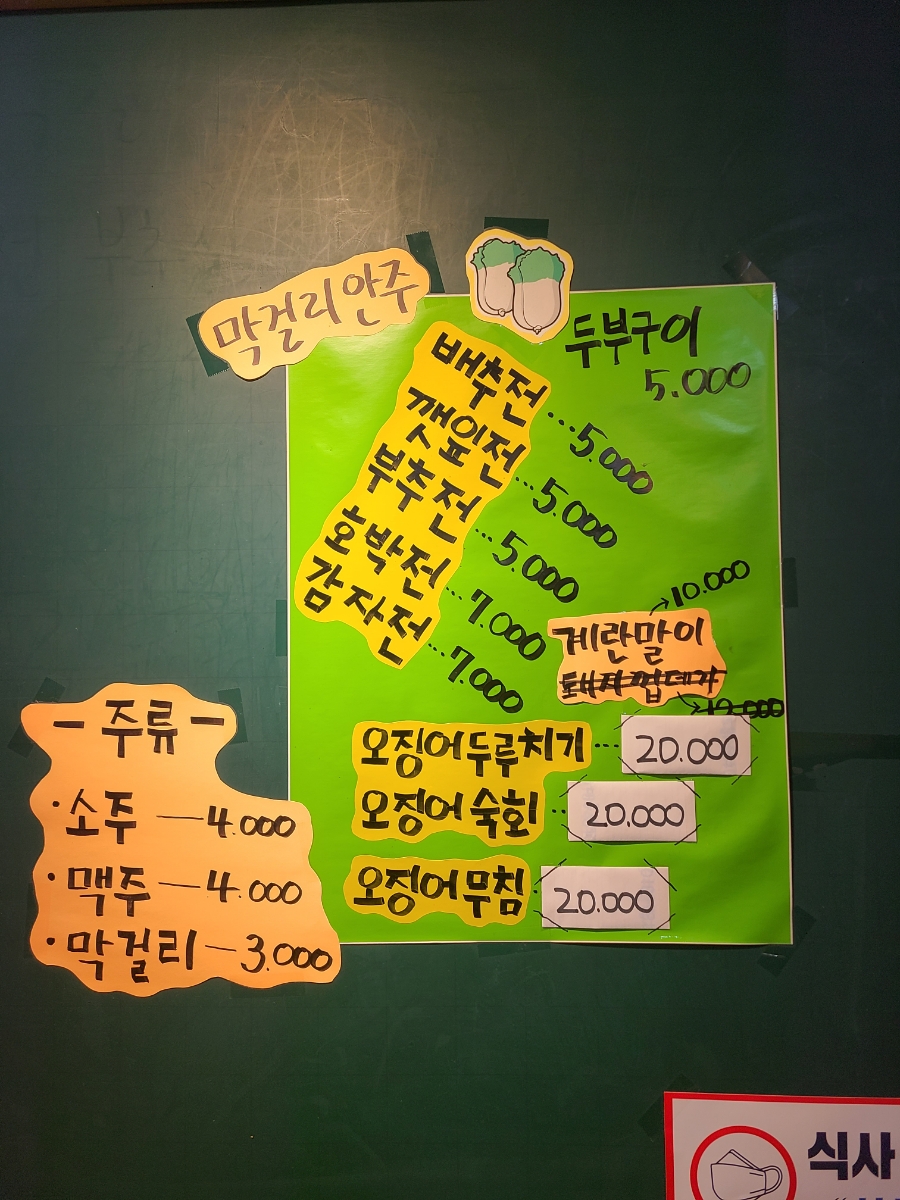 막걸리안주
두부구이
5.000
배추전...5.000
깻잎전...5.000
부추전...5.000
호박전...7.000
감자전...7.000
→10.000
계란말이
돼지껍데가
→12.000
오징어두루치기...20.000
오징어숙회...20.000
오징어무침 20.000
- 주류 -
·소주 - 4.000
·맥주 - 4.000
·막걸리 - 3.000
식사